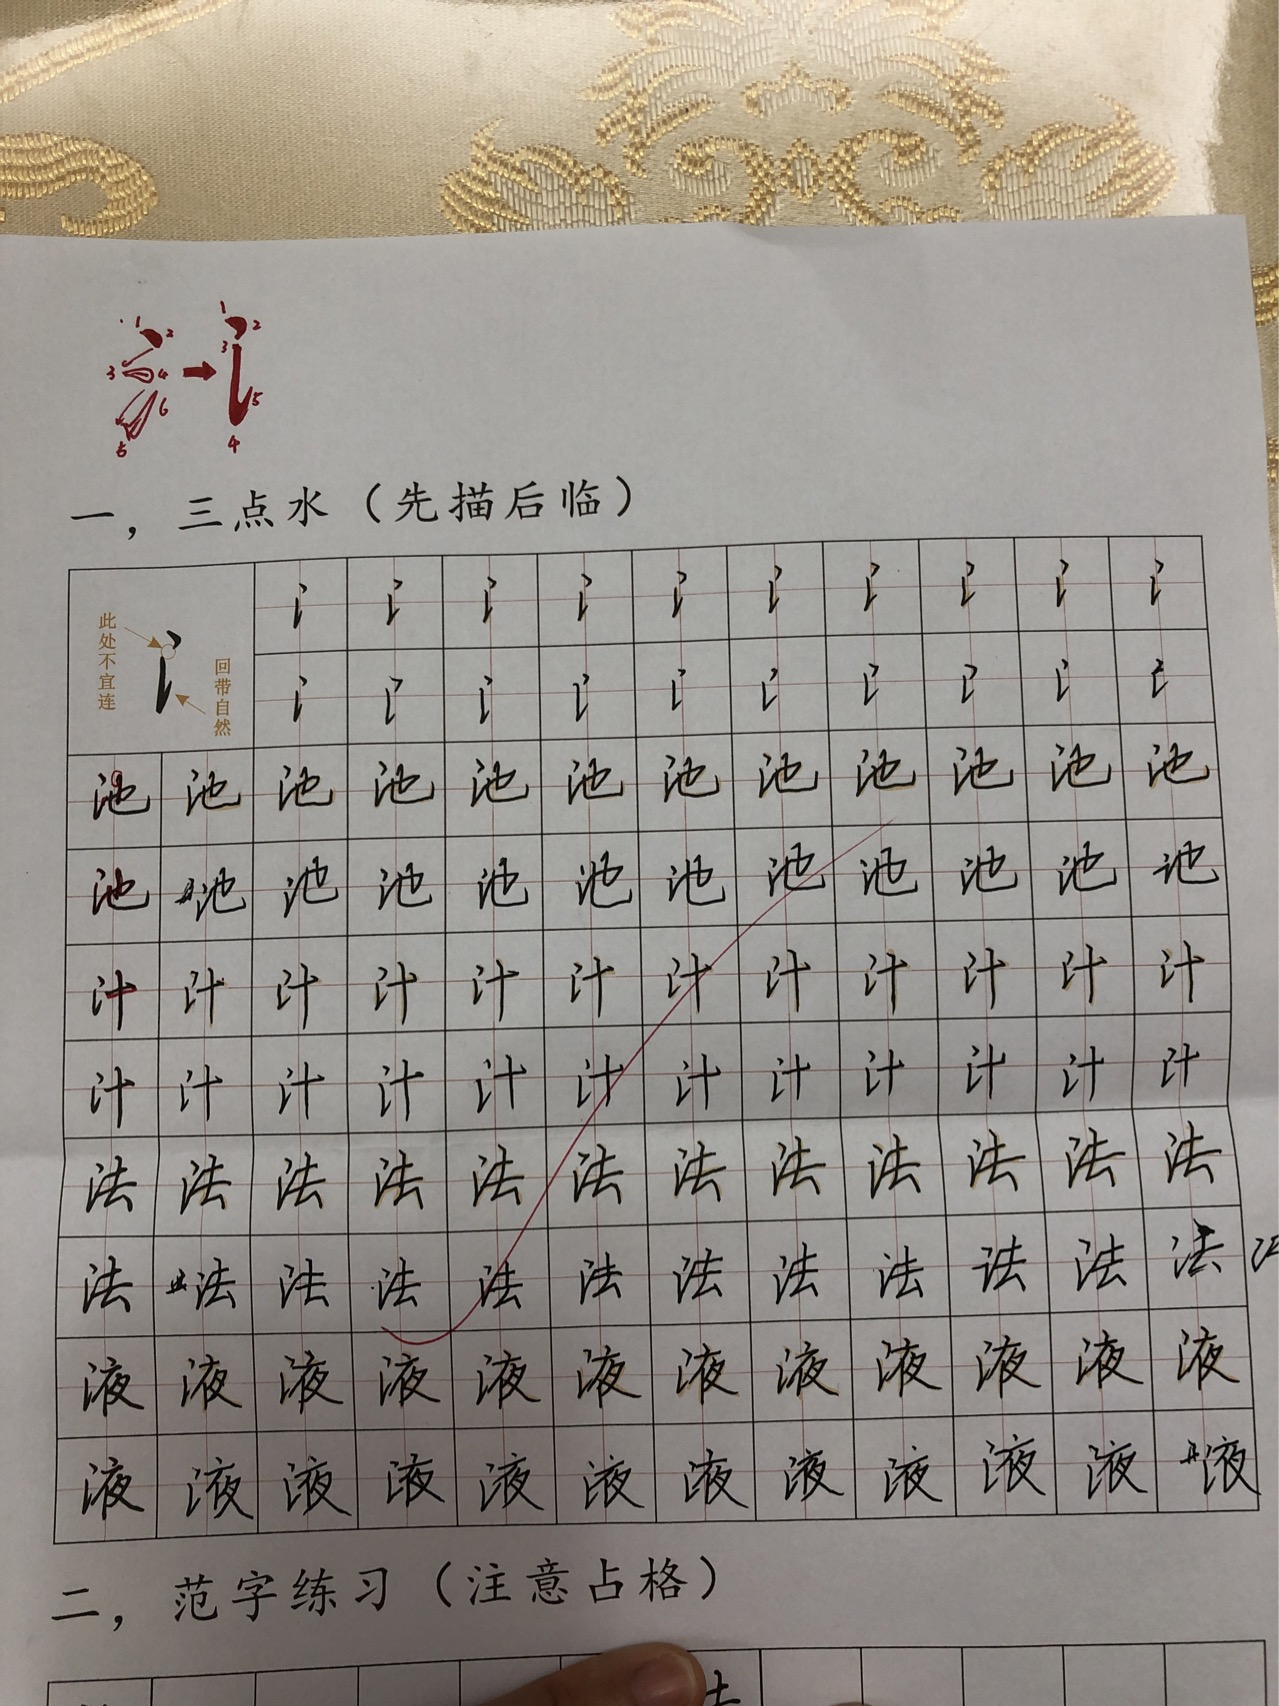 1 2 3 4 6 5
1 2 3 5 4
一，三点水（先描后临）
此处不宜连 回带自然
氵 氵 氵 氵 氵 氵 氵 氵 氵 氵 氵
氵 氵 氵 氵 氵 氵 氵 氵 氵 氵
池 池 池 池 池 池 池 池 池 池 池 池
池 池 池 池 池 池 池 池 池 池 池 池
汁 汁 汁 汁 汁 汁 汁 汁 汁 汁 汁 汁
汁 汁 汁 汁 汁 汁 汁 汁 汁 汁 汁 汁
法 法 法 法 法 法 法 法 法 法 法 法
法 法 法 法 法 法 法 法 法 法 法 法
液 液 液 液 液 液 液 液 液 液 液 液
液 液 液 液 液 液 液 液 液 液 液 液
二，范字练习（注意占格）